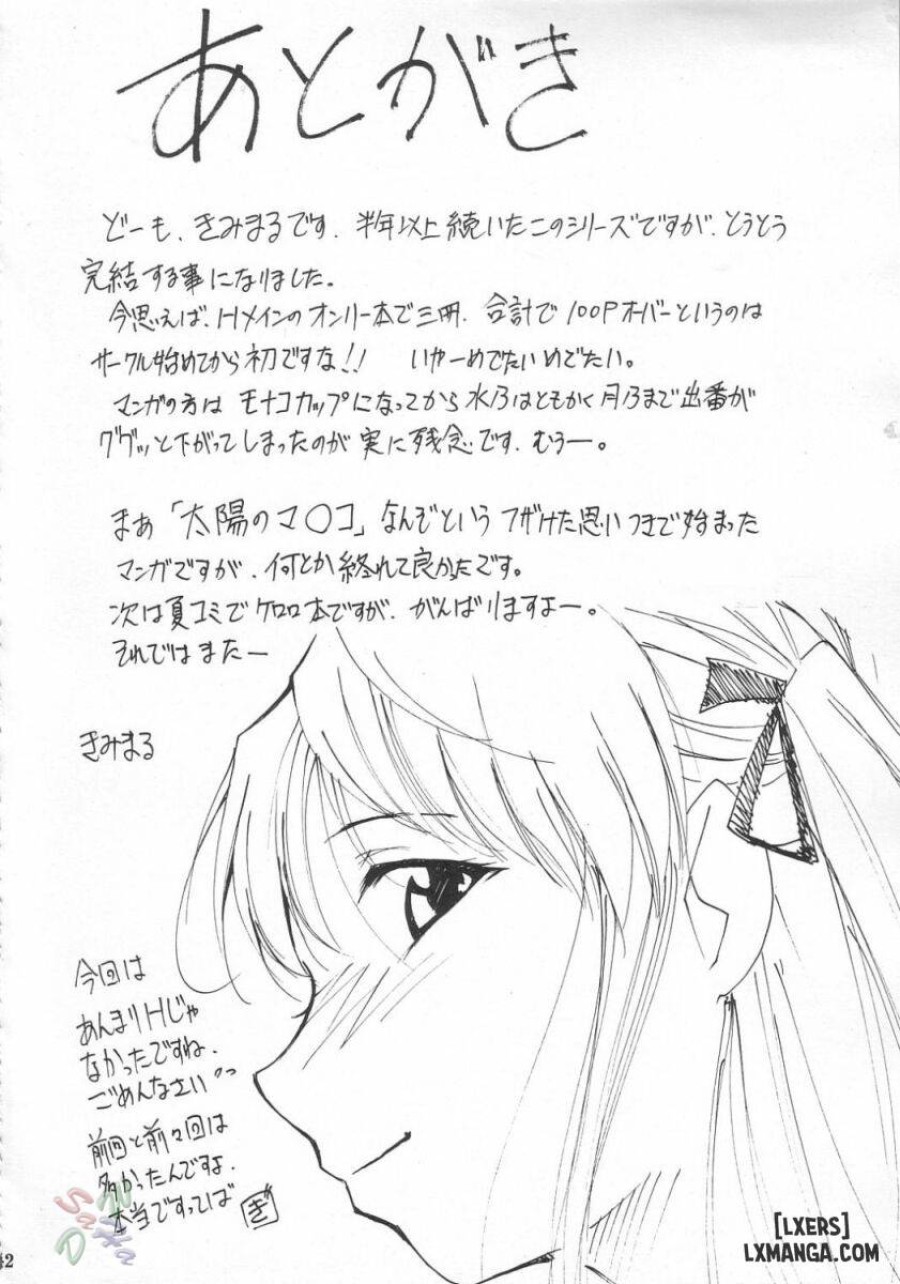 あとがき
どーも、きみまるです。半年以上続いたこのシリーズですが、とうとう
完結する事になりました。
今思えば、Hメインのオンリー本で三冊、合計で100Pオーバーというのは
サークル始めてから初ですな!! いやーめでたいめでたい。
マンガの方は モナコカップになってから水乃はともかく月乃まで出番が
ググッと下がってしまったのが実に残念です。むうー。
まぁ「太陽のマ〇コ」なんぞという フザけた思いつきで始まった
マンガですが、何とか終れて良かったです。
次は夏コミでケロロ本ですが、がんばりますよー。
それではまたー
きみまる
今回は
あんまりHじゃ
なかったですね。
ごめんなさい
前回と前々回は
多かったんですよ。
本当ですってば
ぎ
SaHa
42
[LXERS]
LXMANGA.COM